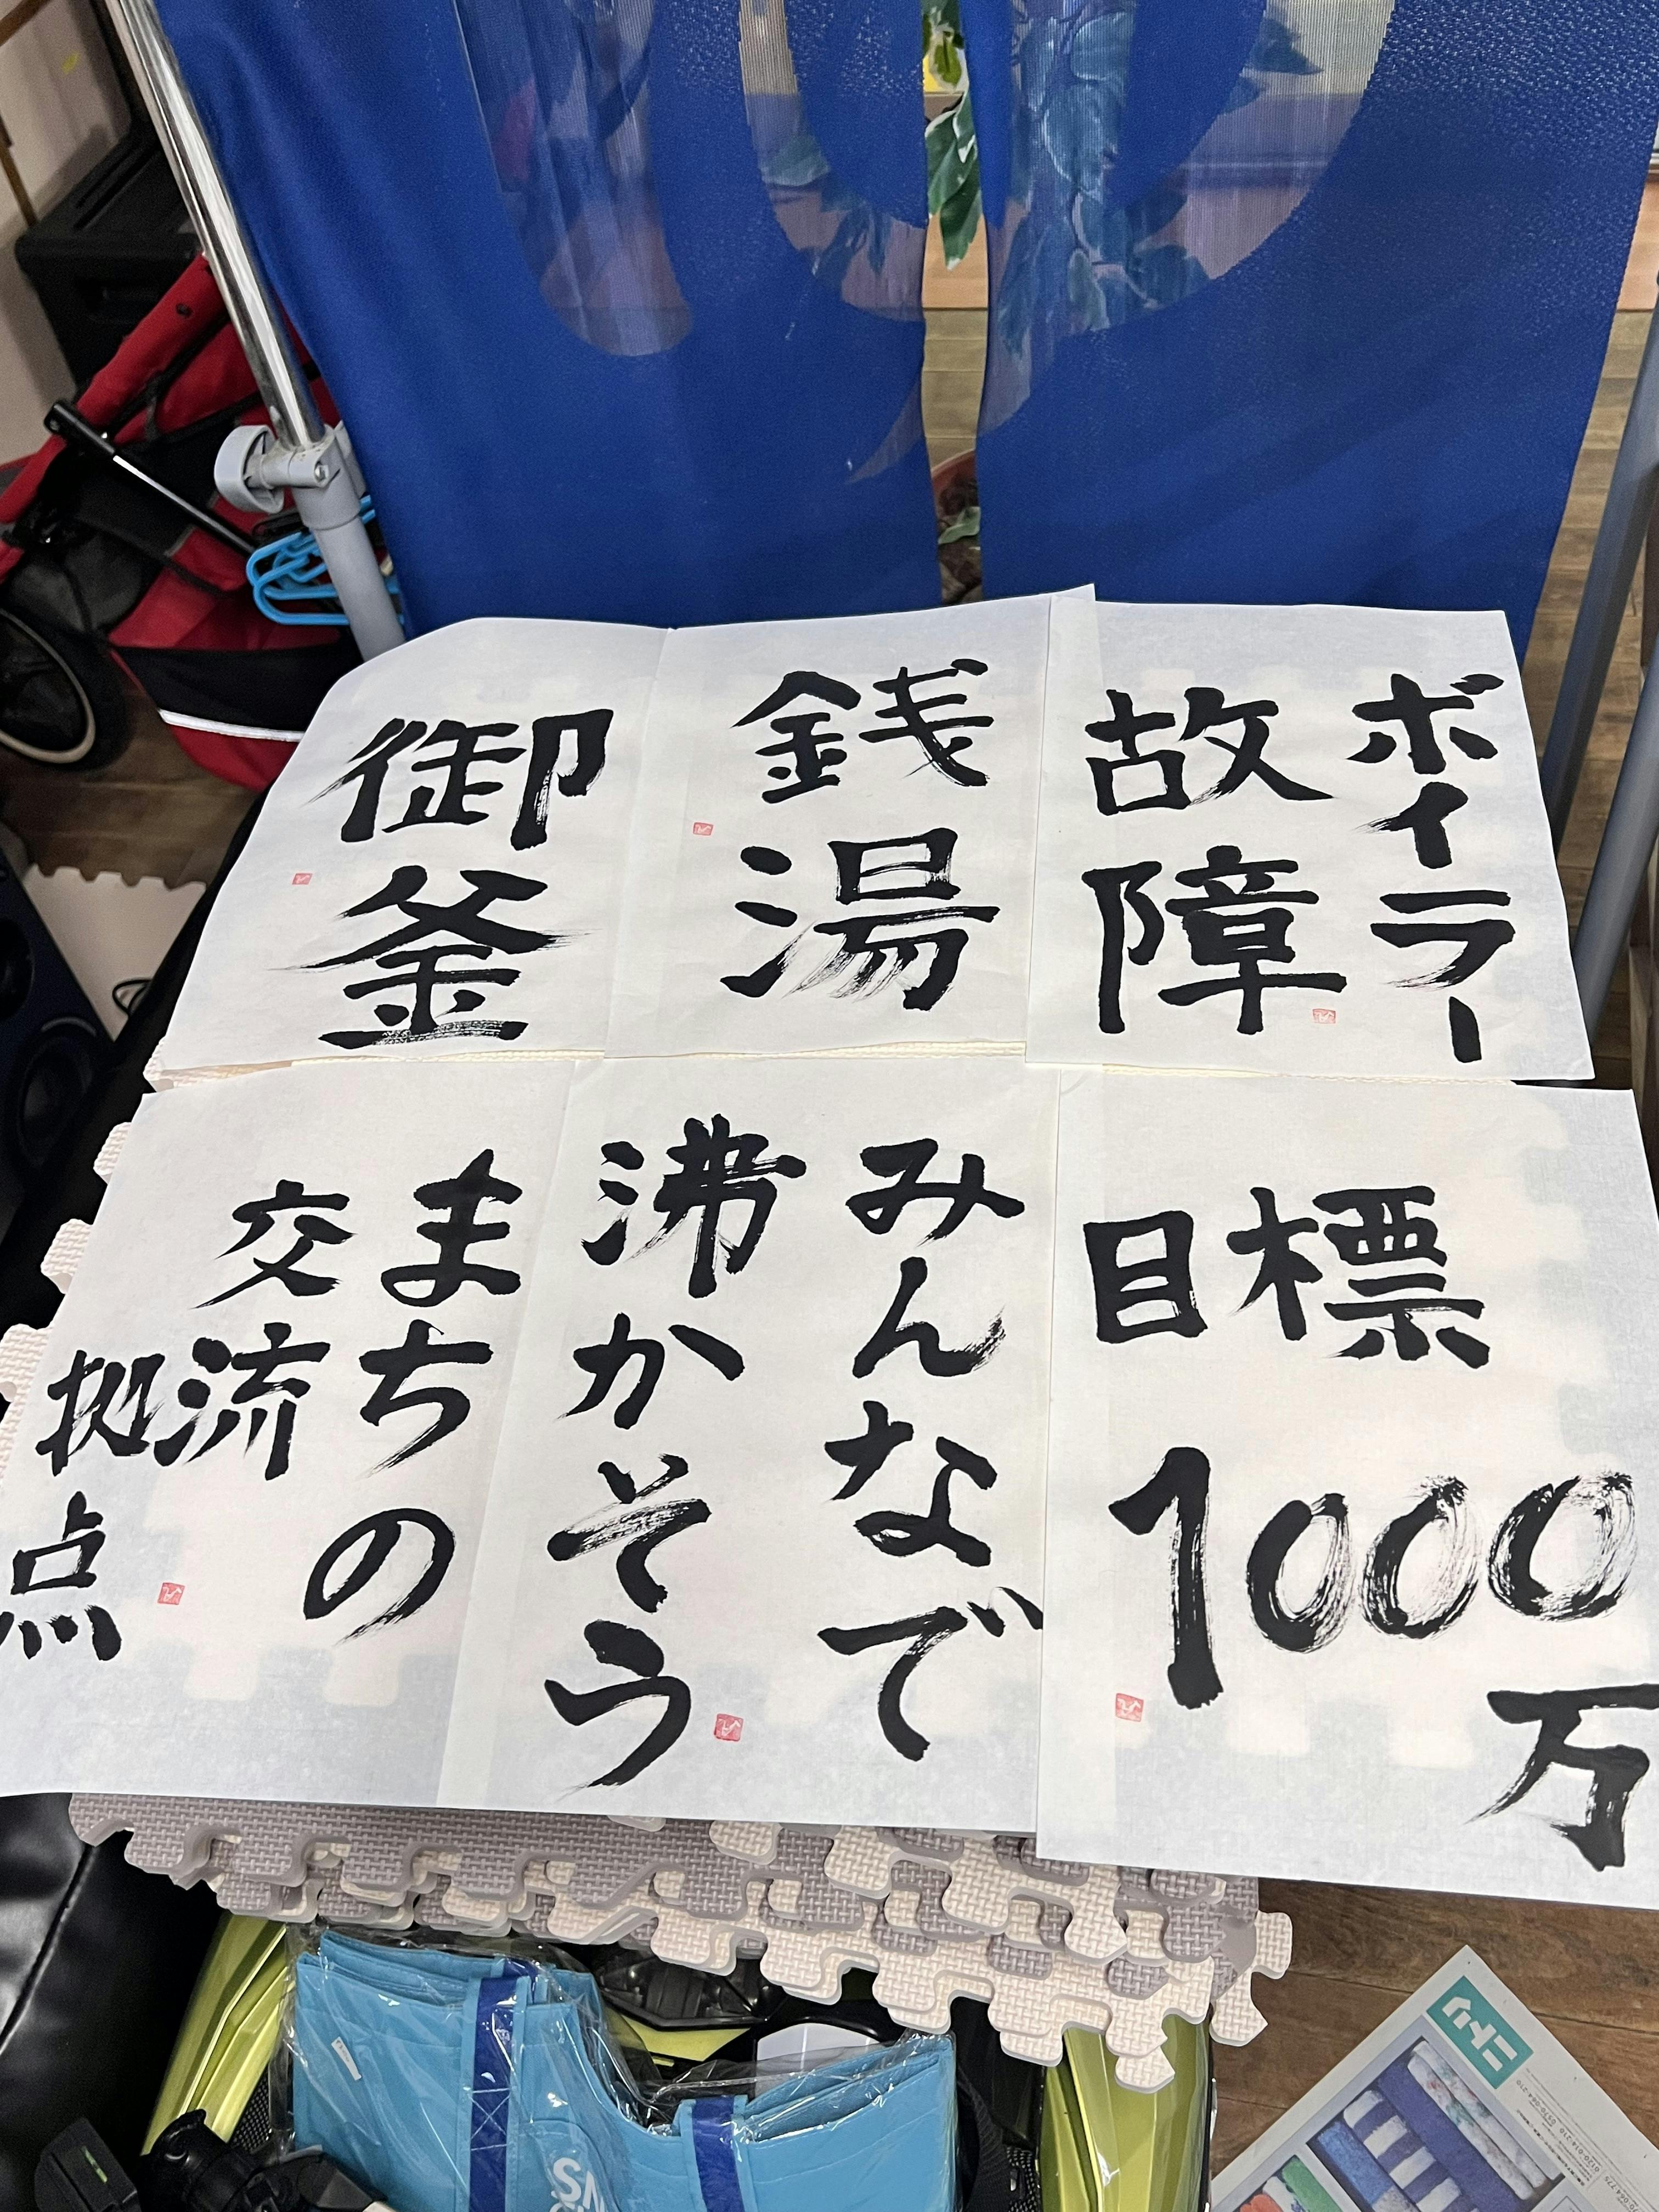 ボイラー
故障
銭湯
御釜
目標
1000
万
みんなで
沸かそう
まちの
交流
拠点
ニトリ